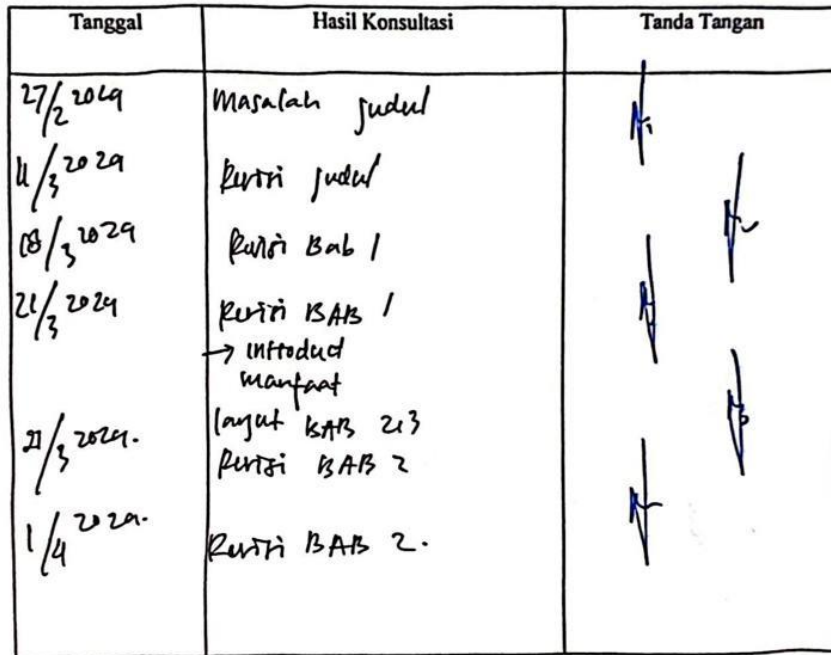 Tanggal Hasil Konsultasi Tanda Tangan
27/2 2024 Masalah judul
4/3 2024 Revisi judul
18/3 2024 Revisi Bab 1
21/3 2024 Revisi BAB 1
→ introduct
manfaat
lanjut BAB 2,3
/3 2024. Revisi BAB 2
1/4 2024. Revisi BAB 2.